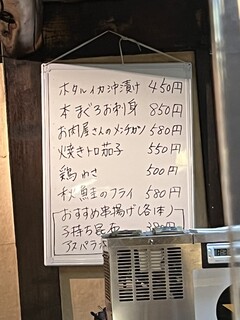 ホタルイカ沖漬け 450円
本まぐろお刺身 850円
お肉屋さんのメンチカツ 580円
焼きトロ茄子 550円
鶏わさ 500円
秋鮭のフライ 580円
おすすめ串揚げ(各1本)
子持ち昆布
アスパラ